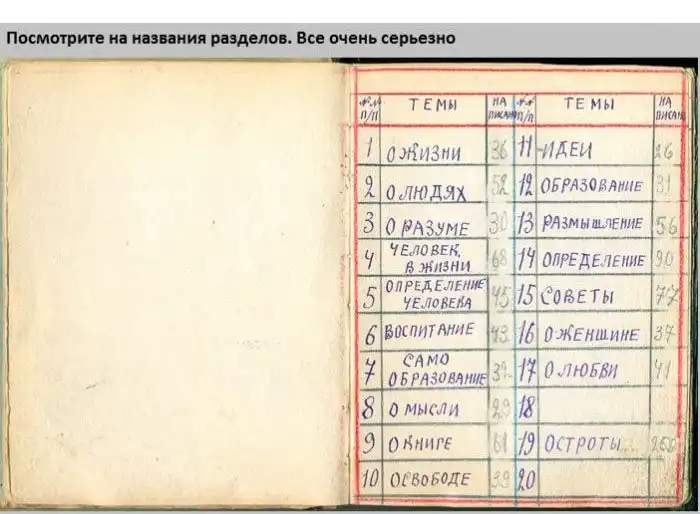 Посмотрите на названия разделов. Все очень серьезно
№№ П/П ТЕМЫ НА ПИСАНО №№ П/П ТЕМЫ НА ПИСАН
1 О ЖИЗНИ 36 11 ИДЕИ 26
2 О ЛЮДЯХ 52 12 ОБРАЗОВАНИЕ 31
3 О РАЗУМЕ 30 13 РАЗМЫШЛЕНИЕ 56
4 ЧЕЛОВЕК В ЖИЗНИ 68 14 ОПРЕДЕЛЕНИЕ 90
5 ОПРЕДЕЛЕНИЕ ЧЕЛОВЕКА 45 15 СОВЕТЫ 77
6 ВОСПИТАНИЕ 43 16 О ЖЕНЩИНЕ 37
7 САМО ОБРАЗОВАНИЕ 17 О ЛЮБВИ 41
8 О МЫСЛИ 29 18
9 О КНИГЕ 61 19 ОСТРОТЫ
10 О СВОБОДЕ 39 20